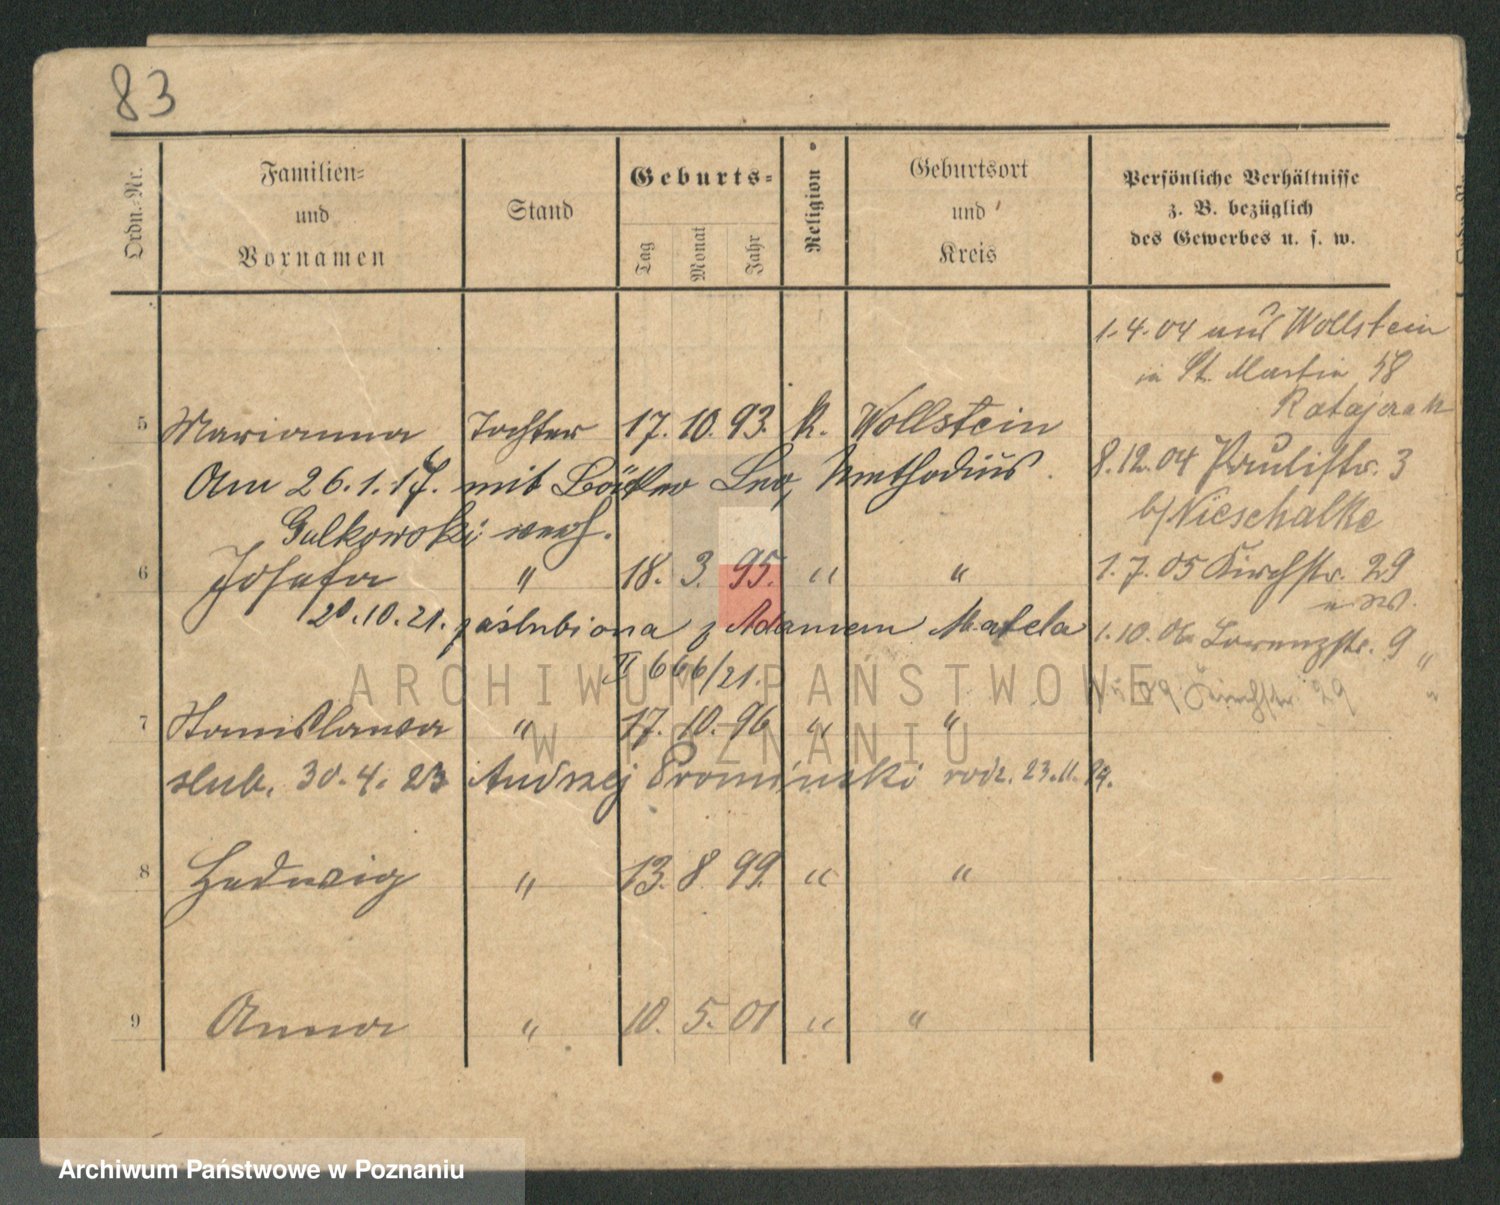 83
Ordn.-Nr.
Familien-
und
Vornamen
Stand
Geburts-
Tag
Monat
Jahr
Religion
Geburtsort
und
Kreis
Persönliche Verhältnisse
z. B. bezüglich
des Gewerbes u. s. w.
1.4.04 aus Wollstein
in St. Martin 58
Ratajczak
5 Marianna Tochter 17. 10. 93. k. Wollstein
8.12.04 Paulistr. 3
Am 26.1.17. mit Bäcker Leo, Methodius
b/ Nieschalke
Gulkowski verh.
6 Josefa " 18. 3. 95. " "
1.7.05 Kirchstr. 29
20.10.21. zaślubiona z Adamem Matela
1.10.06 Lorenzstr. 9 "
II 666/21.
09 Kirchstr. 29 "
7 Stanislawa " 17. 10. 96 " "
slub. 30.4.23 Andrzej Promiński rodz. 23.11.
8 Hedwig " 13. 8. 99. " "
9 Anna " 10. 5. 01 " "
ARCHIWUM PAŃSTWOWE
W POZNANIU
Archiwum Państwowe w Poznaniu